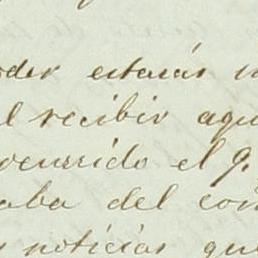 oder estarás
l recibir aqu
ocurrido el 9.
aba del con
noticias que